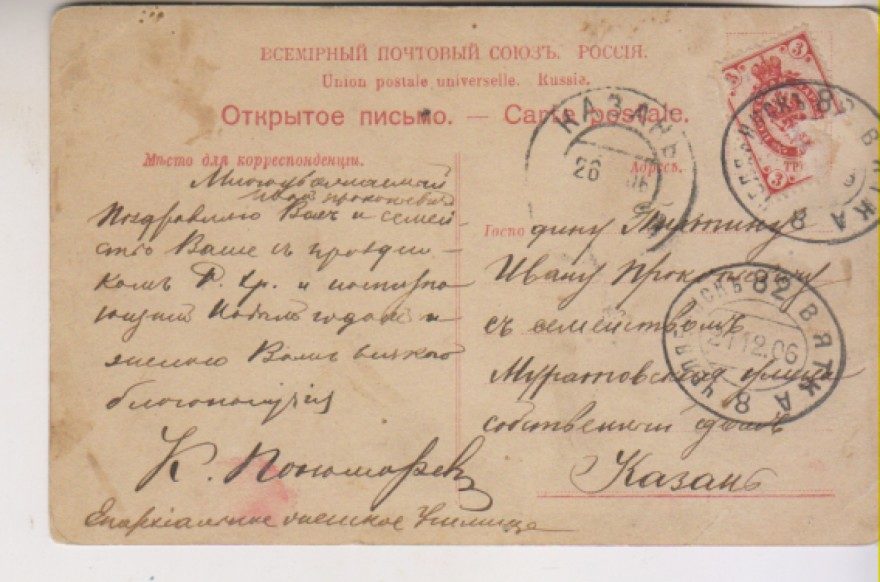 ВСЕМІРНЫЙ ПОЧТОВЫЙ СОЮЗЪ. РОССІЯ.
Union postale universelle. Russie.
Открытое письмо. — Carte postale.
Мѣсто для корреспонденціи.
Адресъ.
Многоуважаемый
Иванъ Прокопьевичъ
Поздравляю Васъ и семей-
ство Ваше съ праздни-
комъ Р. Хр. и наступа-
ющимъ Новымъ годомъ и
желаю Вамъ всякого
благополучія
К. Пономаревъ
Епархіальное женское Училище
Госпо дину Тютину
Ивану Прокопьевичу
съ семействомъ
Муратовская улица
собственный домъ
Казань
КАЗАНЬ
26
3
3
3
ЧЕЛЯБИНСКЪ 82 ВЯТКА
8
ЧЕЛЯБИНСКЪ 82 ВЯТКА
21.12.06
8